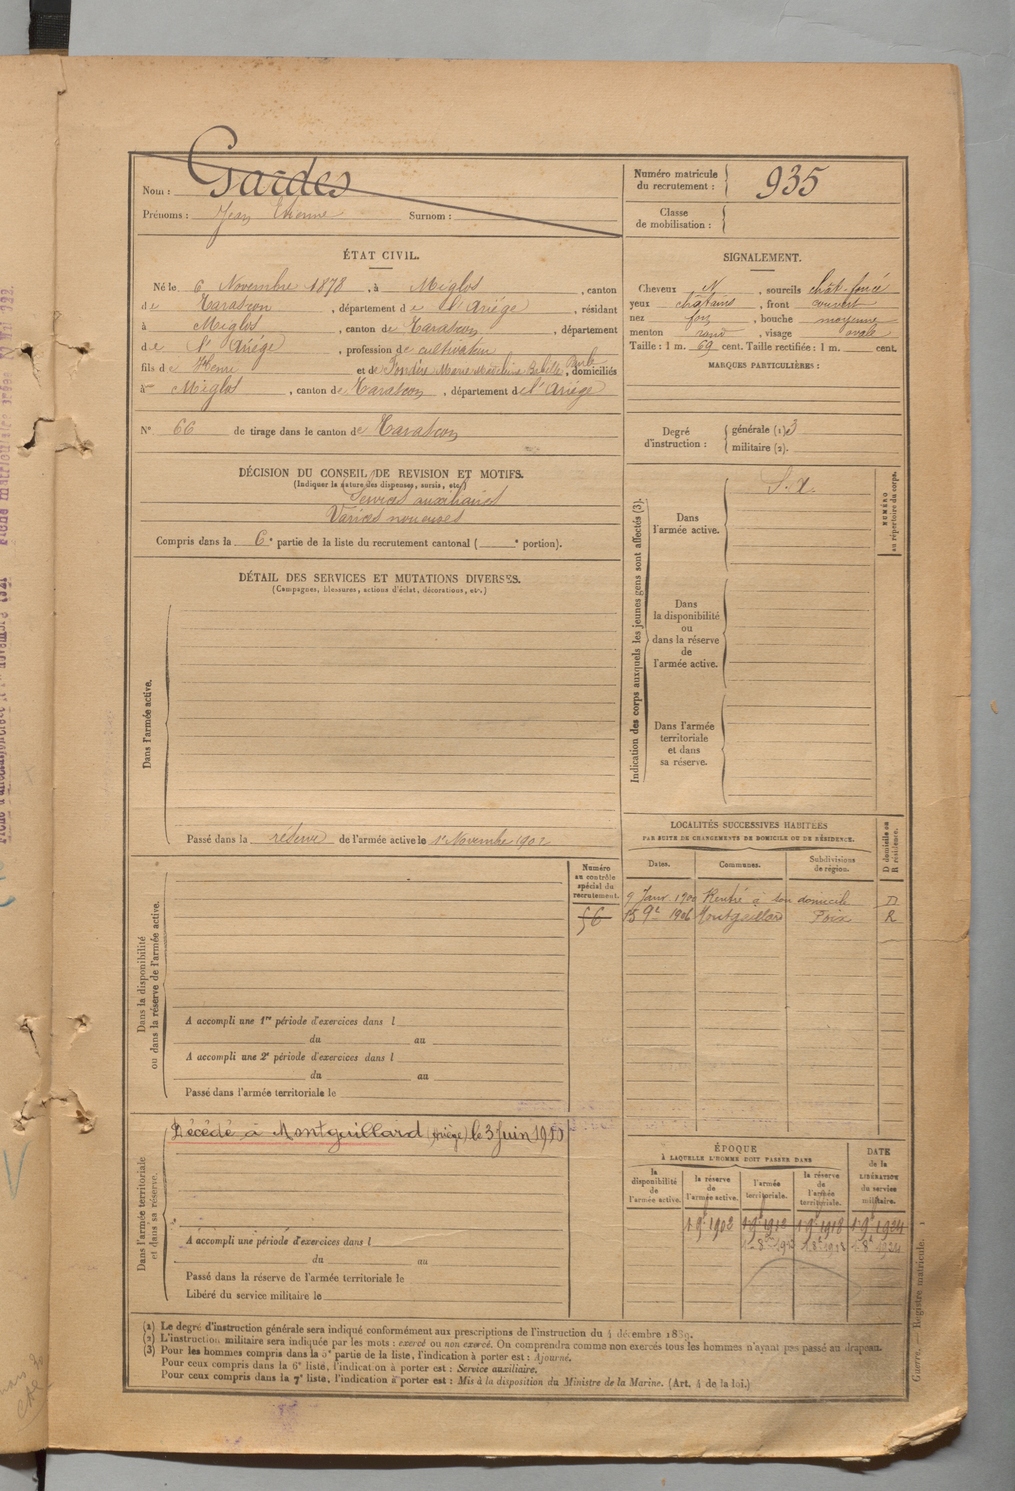 Nom : Gardes
Prénoms : Jean Etienne Surnom :
Numéro matricule
du recrutement : 935
Classe
de mobilisation :
ÉTAT CIVIL.
Né le 6 Novembre 1878, à Miglos, canton
de Tarascon, département de l'Ariège, résidant
à Miglos, canton de Tarascon, département
de l'Ariège, profession de cultivateur
fils de Henri et de Marie, domiciliés
à Miglos, canton de Tarascon, département de l'Ariège
N° 66 de tirage dans le canton de Tarascon
SIGNALEMENT.
Cheveux N, sourcils chât-foncé
yeux châtains, front couvert
nez fort, bouche moyenne
menton rond, visage ovale
Taille : 1 m. 69 cent. Taille rectifiée : 1 m. cent.
MARQUES PARTICULIÈRES :
Degré
d'instruction : générale (1) 3
militaire (2).
DÉCISION DU CONSEIL DE REVISION ET MOTIFS.
(Indiquer la nature des dispenses, sursis, etc.)
Services auxiliaires
Varices noueuses
Compris dans la 6e partie de la liste du recrutement cantonal ( e portion).
DÉTAIL DES SERVICES ET MUTATIONS DIVERSES.
(Campagnes, blessures, actions d'éclat, décorations, etc.)
Dans l'armée active.
Passé dans la réserve de l'armée active le 1er Novembre 1902
Indication des corps auxquels les jeunes gens sont affectés (3).
S. A.
Dans
l'armée active.
Dans
la disponibilité
ou
dans la réserve
de
l'armée active.
Dans l'armée
territoriale
et dans
sa réserve.
NUMÉRO
au répertoire du corps.
LOCALITÉS SUCCESSIVES HABITÉES
PAR SUITE DE CHANGEMENTS DE DOMICILE OU DE RÉSIDENCE.
Dates. Communes. Subdivisions
de région.
D domicile ou
R résidence.
9 Janv. 1900 Rentré à son domicile D
15 9e 1906 Montgaillard Foix R
Dans la disponibilité
ou dans la réserve de l'armée active.
Numéro
au contrôle
spécial du
recrutement.
56
A accompli une 1re période d'exercices dans l
du au
A accompli une 2e période d'exercices dans l
du au
Passé dans l'armée territoriale le
Dans l'armée territoriale
et dans sa réserve.
Décédé à Montgaillard (Ariège) le 3 Juin 1910
A accompli une période d'exercices dans l
du au
Passé dans la réserve de l'armée territoriale le
Libéré du service militaire le
ÉPOQUE
À LAQUELLE L'HOMME DOIT PASSER DANS
la
disponibilité
de
l'armée active.
la réserve
de
l'armée active.
l'armée
territoriale.
la réserve
de
l'armée
territoriale.
DATE
de la
LIBÉRATION
du service
militaire.
1 9e 1902 1 9e 1912 1 9e 1918 1 9e 1924
(1) Le degré d'instruction générale sera indiqué conformément aux prescriptions de l'instruction du 4 décembre 1889.
(2) L'instruction militaire sera indiquée par les mots : exercé ou non exercé. On comprendra comme non exercés tous les hommes n'ayant pas passé au drapeau.
(3) Pour les hommes compris dans la 5e partie de la liste, l'indication à porter est : Ajourné.
Pour ceux compris dans la 6e liste, l'indication à porter est : Service auxiliaire.
Pour ceux compris dans la 7e liste, l'indication à porter est : Mis à la disposition du Ministre de la Marine. (Art. 4 de la loi.)
Guerre. — Registre matricule.